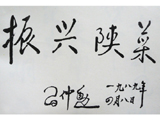 振兴陕菜
习仲勋
一九八九年
四月八日